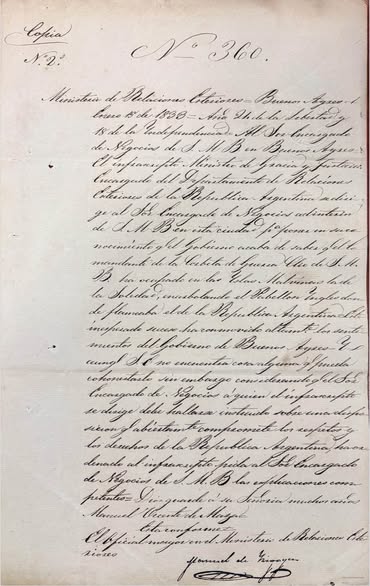 Copia
N.º 2.º
Nº 360.
Ministerio de Relaciones Esteriores = Buenos Ayres
Enero 18 de 1833 = Año 24 de la Libertad y
18 de la Independencia = Al Sor Encargado
de Negocios de S. M. B. en Buenos Ayres =
El infrascripto Ministro de Gracia y Justicia
Encargado del Departamento de Relaciones
Esteriores de la Republica Argentina se diri-
ge al Sor Encargado de Negocios
de S. M. B. en esta ciudad pª poner en su co-
nocimiento q.e el Gobierno acaba de saber q.e el Co-
mandante de la Corbeta de Guerra Clio de S. M.
B. ha ocupado en las Yslas Malvinas la de
la Soledad, enarbolando el Pabellon Yngles don-
de flameaba el de la Republica Argentina. Este
inesperado suceso ha conmovido altamte. los senti-
mientos del Gobierno de Buenos Ayres Y
aunq.e S. E. no encuentra cosa alguna q.e pueda
cohonestarlo sin embargo considerando q.e el Sor
Encargado de Negocios á quien el infrascripto
se dirige debe hallarse instruido sobre una dispo-
sicion q.e abiertamte. compromete los respetos y
los derechos de la Republica Argentina, ha or-
denado al infrascripto pida al Sor Encargado
de Negocios de S. M. B. las esplicaciones com-
petentes = Dios guarde á su Señoria muchos años
Manuel Vicente de Maza =
Esta conforme =
El oficial mayor en el Ministerio de Relaciones Este-
riores
Manuel de Irigoyen